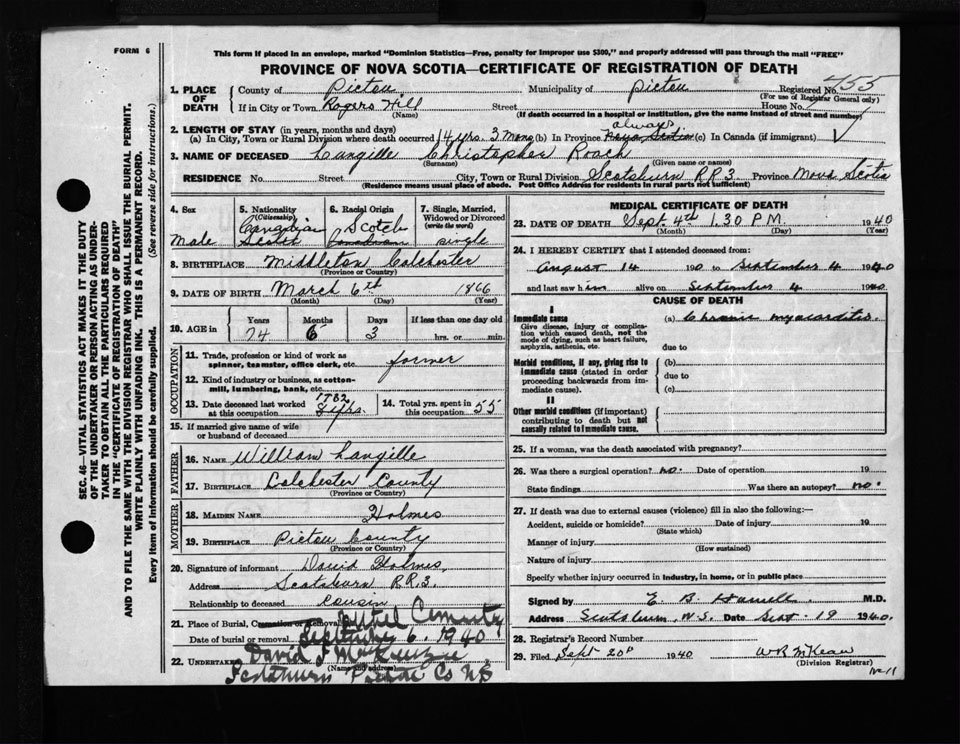 FORM 6
This form if placed in an envelope, marked "Dominion Statistics—Free, penalty for improper use $300," and properly addressed will pass through the mail "FREE"
PROVINCE OF NOVA SCOTIA—CERTIFICATE OF REGISTRATION OF DEATH
SEC. 46—VITAL STATISTICS ACT MAKES IT THE DUTY
OF THE UNDERTAKER OR PERSON ACTING AS UNDER-
TAKER TO OBTAIN ALL THE PARTICULARS REQUIRED
IN THE "CERTIFICATE OF REGISTRATION OF DEATH"
AND TO FILE THE SAME WITH THE DIVISION REGISTRAR WHO SHALL ISSUE THE BURIAL PERMIT.
WRITE PLAINLY WITH UNFADING INK. THIS IS A PERMANENT RECORD.
Every item of information should be carefully supplied. (See reverse side for instructions.)
1. PLACE OF DEATH
County of Pictou Municipality of Pictou Registered No. 455
(For use of Registrar General only)
If in City or Town Rogers Hill Street House No.
(Name) (If death occurred in a hospital or institution, give the name instead of street and number)
2. LENGTH OF STAY (in years, months and days) always
(a) In City, Town or Rural Division where death occurred 14 yrs. 3 Mons (b) In Province Nova Scotia (c) In Canada (if immigrant)
3. NAME OF DECEASED Langille Christopher Roach
(Surname) (Given name or names)
RESIDENCE No. Street City, Town or Rural Division Scotsburn RR3 Province Nova Scotia
(Residence means usual place of abode. Post Office Address for residents in rural parts not sufficient)
4. Sex Male
5. Nationality (Citizenship) Canadian
6. Racial Origin Scotch Canadian
7. Single, Married, Widowed or Divorced (write the word) single
8. BIRTHPLACE Middleton Colchester
(Province or County)
9. DATE OF BIRTH March 6th 1866
(Month) (Day) (Year)
10. AGE in Years Months Days If less than one day old
74 6 3 hrs. or min.
OCCUPATION
11. Trade, profession or kind of work as spinner, teamster, office clerk, etc. farmer
12. Kind of industry or business, as cotton-mill, lumbering, bank, etc.
13. Date deceased last worked at this occupation 8 yrs.
14. Total yrs. spent in this occupation 55
15. If married give name of wife or husband of deceased
FATHER
16. NAME William Langille
17. BIRTHPLACE Colchester County
(Province or County)
MOTHER
18. MAIDEN NAME Holmes
19. BIRTHPLACE Pictou County
(Province or County)
20. Signature of informant David Holmes,
Address Scotsburn RR.3.
Relationship to deceased cousin
21. Place of Burial, Cremation or Removal Cemetry
Date of burial or removal September 6. 1940
22. UNDERTAKER David J McKenzie
(Name and address)
Scotsburn Pictou Co NS
MEDICAL CERTIFICATE OF DEATH
23. DATE OF DEATH Sept. 4th 1.30 P.M. 1940
(Month) (Day) (Year)
24. I HEREBY CERTIFY that I attended deceased from:
August 14 1940 to September 4 1940
and last saw him alive on September 4 1940
CAUSE OF DEATH
I
Immediate cause (a) Chronic myocarditis.
Give disease, injury or complication which caused death, not the mode of dying, such as heart failure, asphyxia, asthenia, etc. due to
Morbid conditions, if any, giving rise to immediate cause (stated in order proceeding backwards from immediate cause). (b)
due to
(c)
II
Other morbid conditions (if important) contributing to death but not causally related to immediate cause.
25. If a woman, was the death associated with pregnancy?
26. Was there a surgical operation? no. Date of operation 19
State findings Was there an autopsy? no.
27. If death was due to external causes (violence) fill in also the following:—
Accident, suicide or homicide? Date of injury 19
(State which)
Manner of injury
(How sustained)
Nature of injury
Specify whether injury occurred in industry, in home, or in public place
Signed by E. B. M.D.
Address Scotsburn N.S. Date Sept. 19 1940
28. Registrar's Record Number
29. Filed Sept 20th 1940 W R McKean
(Division Registrar)